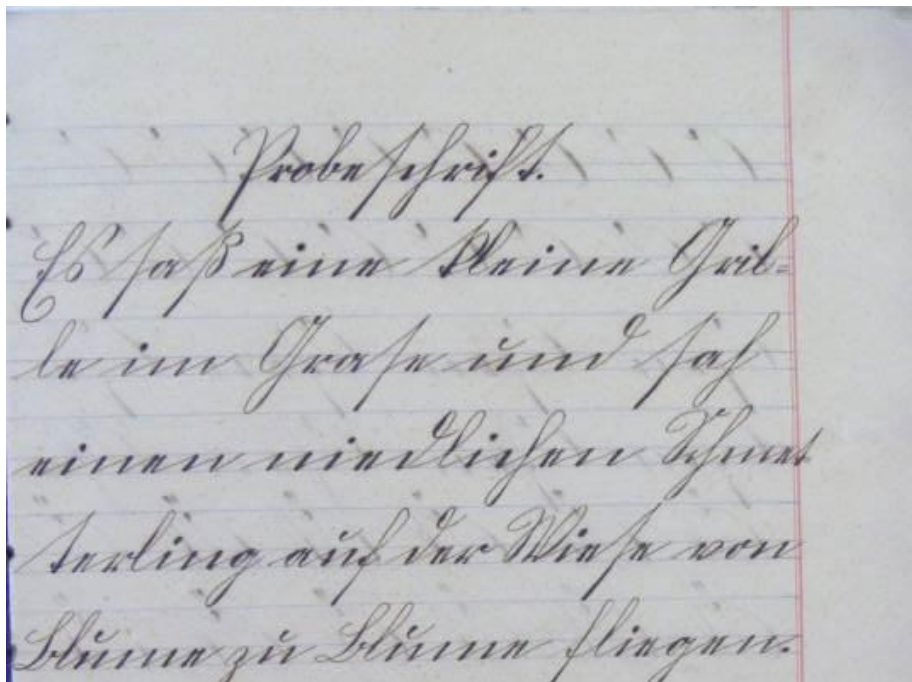 Probeschrift.
Es saß eine kleine Gril=
le im Grase und sah
einen niedlichen Schmet
terling auf der Wiese von
Blume zu Blume fliegen.